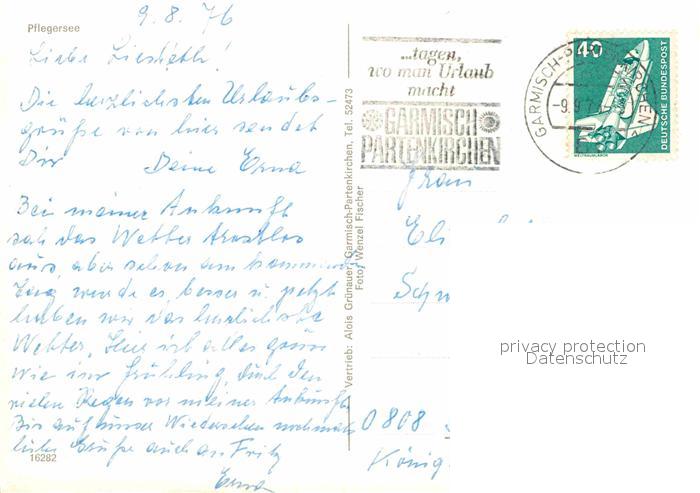 Pflegersee
9.8.76
Liebe Liesbeth!
Die herzlichsten Urlaubs-
grüße von hier sendet
Dir Deine Erna
Bei meiner Ankunft
sah das Wetter trostlos
aus, aber schon am kommenden
Tag wurde es besser u. jetzt
haben wir das herrlichste
Wetter. Hier ist alles grün
wie im Frühling, durch den
vielen Regen vor meiner Ankunft.
Bis auf unser Wiedersehen nochmals
liebe Grüße auch an Fritz
Erna
16282
Vertrieb: Alois Grünauer, Garmisch-Partenkirchen, Tel. 52473
Foto: Wenzel Fischer
...tagen,
wo man Urlaub
macht
GARMISCH
PARTENKIRCHEN
GARMISCH-P
-9.
40
DEUTSCHE BUNDESPOST
WELTRAUMLABOR
Frau
Eli
Sch
privacy protection
Datenschutz
0808
König